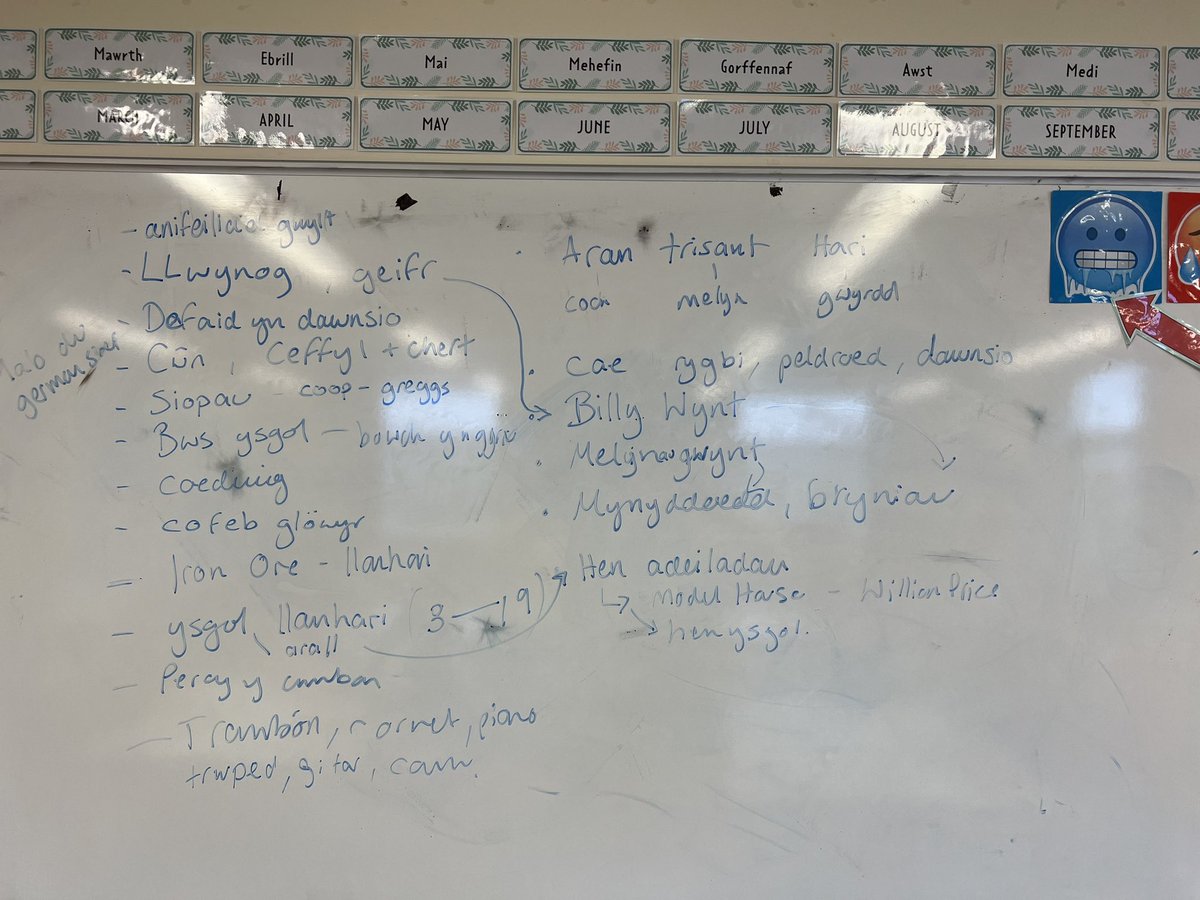 Mawrth Ebrill Mai Mehefin Gorffennaf Awst Medi
MARCH APRIL MAY JUNE JULY AUGUST SEPTEMBER
- anifeiliaid gwyllt
- LLwynog, geifr
- Defaid yn dawnsio
- Cŵn, Ceffyl + chert
- Siopau - coop - greggs
- Bws ysgol -
- coedwig
- cofeb glöwyr
- Iron Ore - llanhari
- ysgol llanhari (3 - 19)
arall
- Percy y
- Trombôn, cornet, piano
trwped, gitar,
Mab dw
german
Aran trisant Hari
coch melyn gwyrdd
cae rygbi, peldroed, dawnsio
Billy Wynt
Melinau gwynt
bryniau
Hen adeiladau
Model House - William Price
hen ysgol.